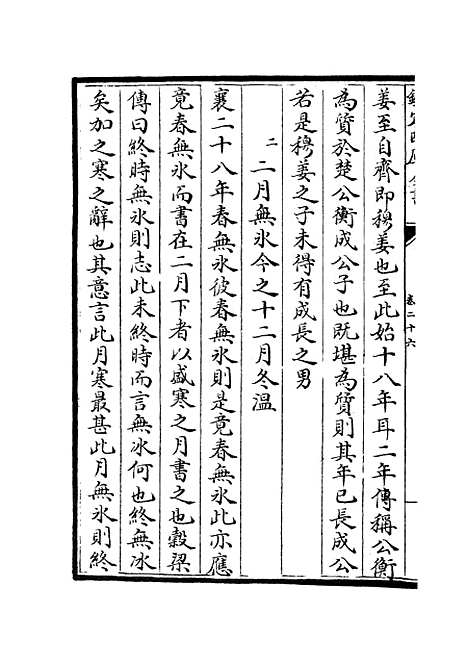 欽定四庫全書
卷二十六
姜至自齊即穆姜也至此始十八年耳二年傳稱公衡
為質於楚公衡成公子也既堪為質則其年已長成公
若是穆姜之子未得有成長之男
二二月無氷今之十二月冬溫
襄二十八年春無氷彼春無氷則是竟春無氷此亦應
竟春無氷而書在二月下者以盛寒之月書之也穀梁
傳曰終時無氷則志此未終時而言無冰何也終無冰
矣加之寒之辭也其意言此月寒最甚此月無氷則終